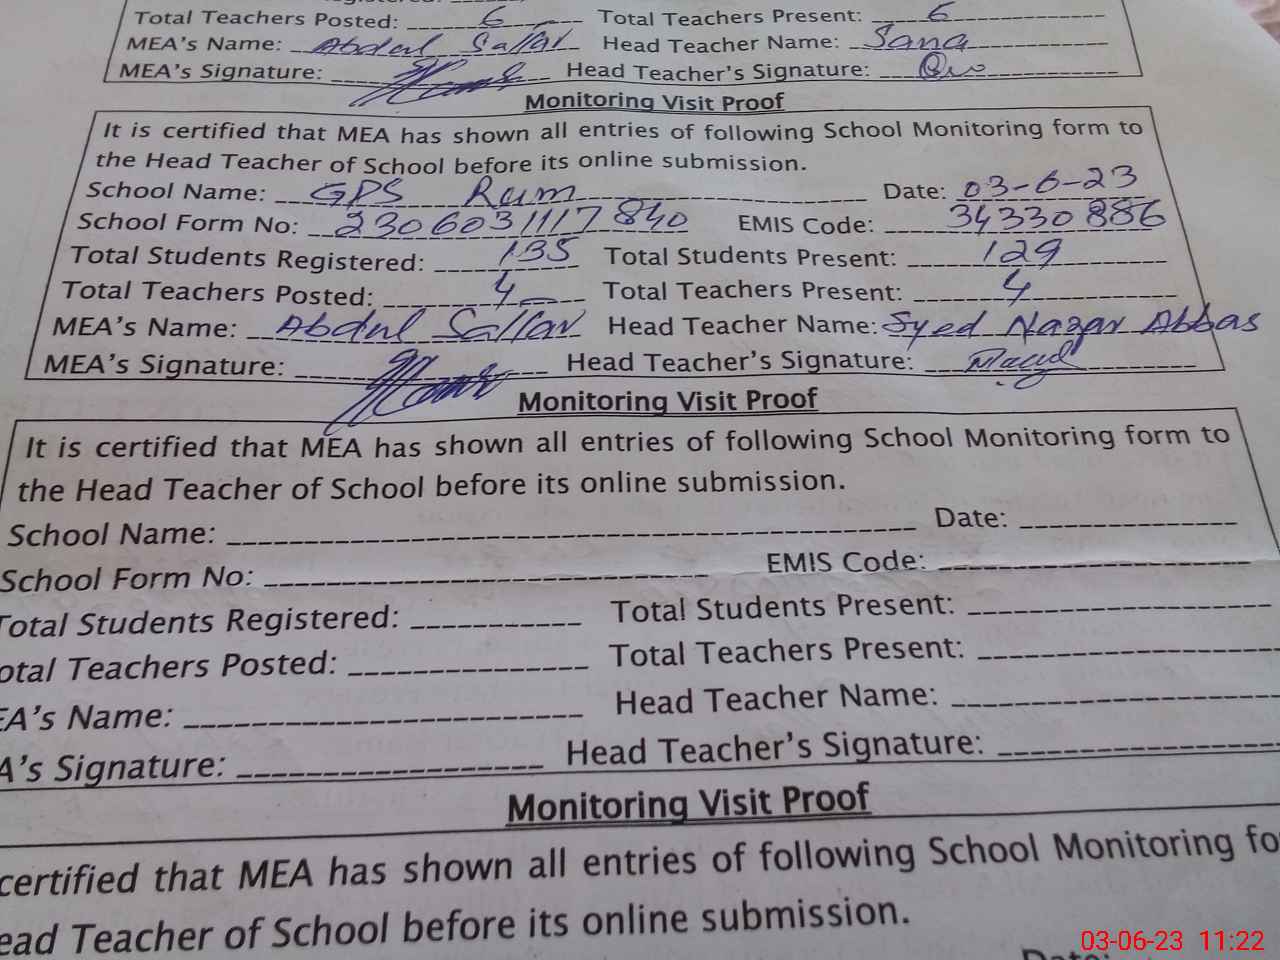 Total Teachers Posted: 6 Total Teachers Present: 6
MEA's Name: Abdul Sattar Head Teacher Name: Sana
MEA's Signature: Head Teacher's Signature:
Monitoring Visit Proof
It is certified that MEA has shown all entries of following School Monitoring form to
the Head Teacher of School before its online submission.
School Name: GPS Rum Date: 03-6-23
School Form No: 2306031117840 EMIS Code: 34330886
Total Students Registered: 135 Total Students Present: 129
Total Teachers Posted: 4 Total Teachers Present: 4
MEA's Name: Abdul Sattar Head Teacher Name: Syed Nazar Abbas
MEA's Signature: Head Teacher's Signature:
Monitoring Visit Proof
It is certified that MEA has shown all entries of following School Monitoring form to
the Head Teacher of School before its online submission.
School Name: Date:
School Form No: EMIS Code:
Total Students Registered: Total Students Present:
otal Teachers Posted: Total Teachers Present:
EA's Name: Head Teacher Name:
A's Signature: Head Teacher's Signature:
Monitoring Visit Proof
certified that MEA has shown all entries of following School Monitoring fo
ead Teacher of School before its online submission.
Date:
03-06-23 11:22